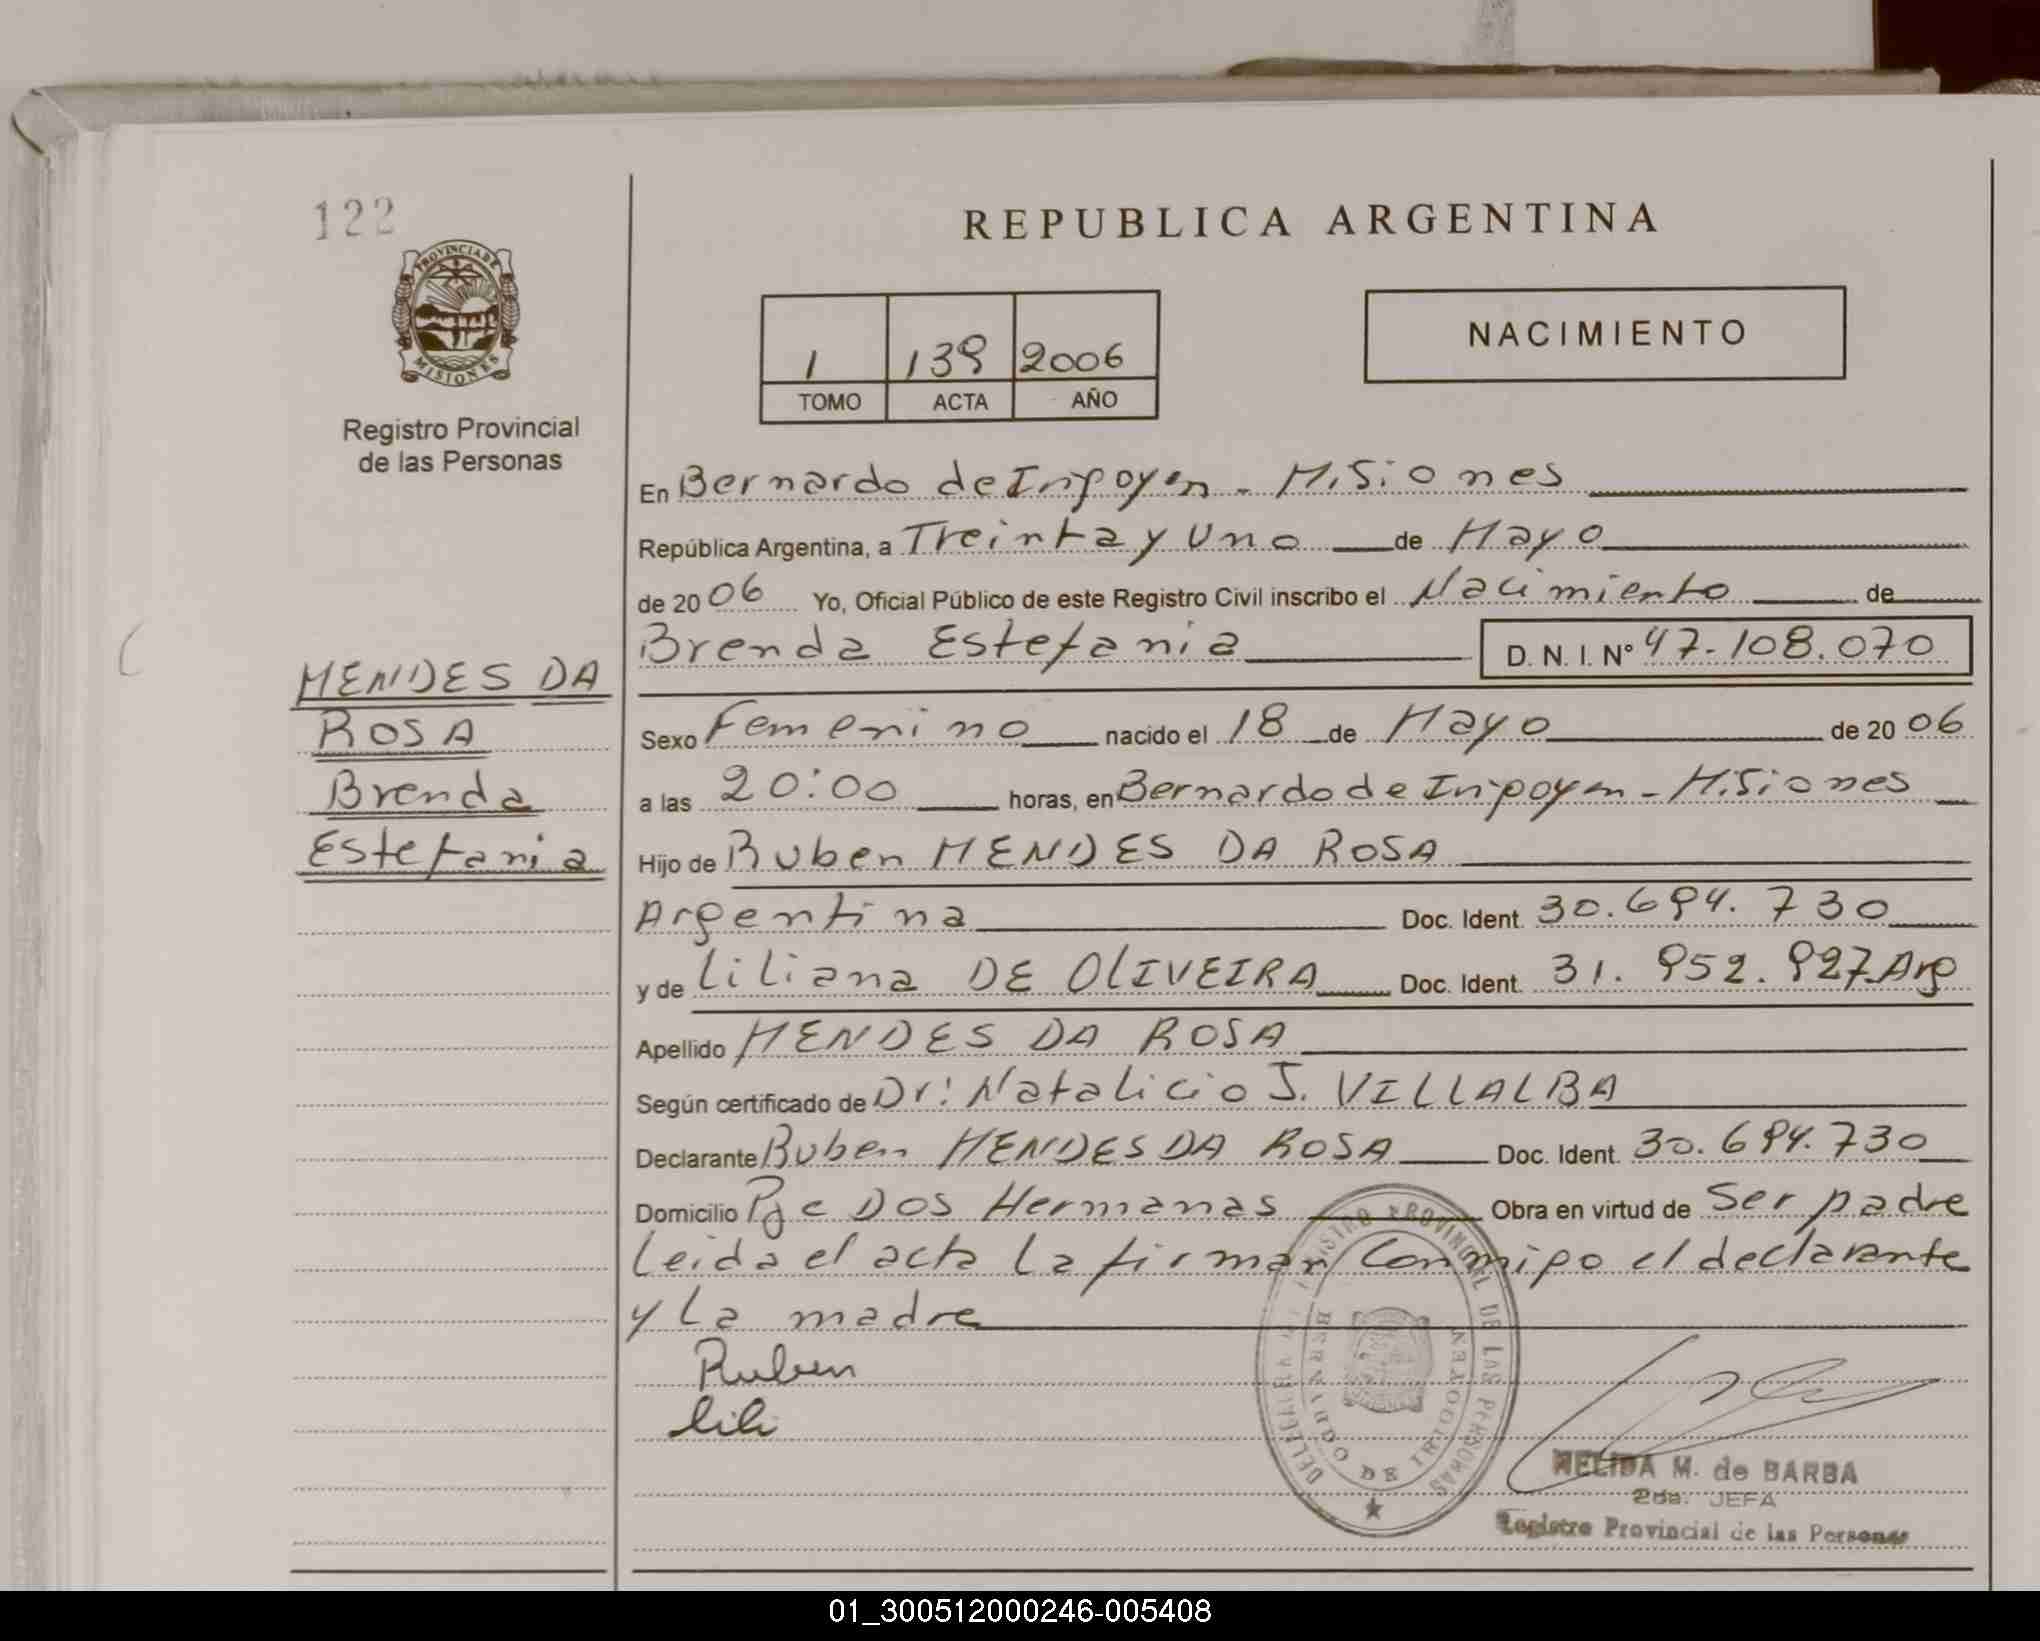 122
PROVINCIA DE
MISIONES
Registro Provincial
de las Personas
MENDES DA
ROSA
Brenda
Estefania
REPUBLICA ARGENTINA
1 139 2006
TOMO ACTA AÑO
NACIMIENTO
En Bernardo de Irigoyen - Misiones
República Argentina, a Treinta y Uno de Mayo
de 2006 Yo, Oficial Público de este Registro Civil inscribo el Nacimiento de
Brenda Estefania D. N. I. N° 47.108.070
Sexo Femenino nacido el 18 de Mayo de 2006
a las 20:00 horas, en Bernardo de Irigoyen - Misiones
Hijo de Ruben MENDES DA ROSA
Argentina Doc. Ident. 30.694.730
y de Liliana DE OLIVEIRA Doc. Ident. 31.952.927 Arg
Apellido MENDES DA ROSA
Según certificado de Dr: Natalicio J. VILLALBA
Declarante Ruben MENDES DA ROSA Doc. Ident. 30.694.730
Domicilio Pje DOS Hermanas Obra en virtud de Ser padre
Leida el acta La firman Conmigo el declarante
y La madre
Ruben
Lili
REGISTRO PROVINCIAL DE LAS PERSONAS
BERNARDO DE IRIGOYEN
NELIDA M. de BARBA
2da. JEFA
Registro Provincial de las Personas
01_300512000246-005408